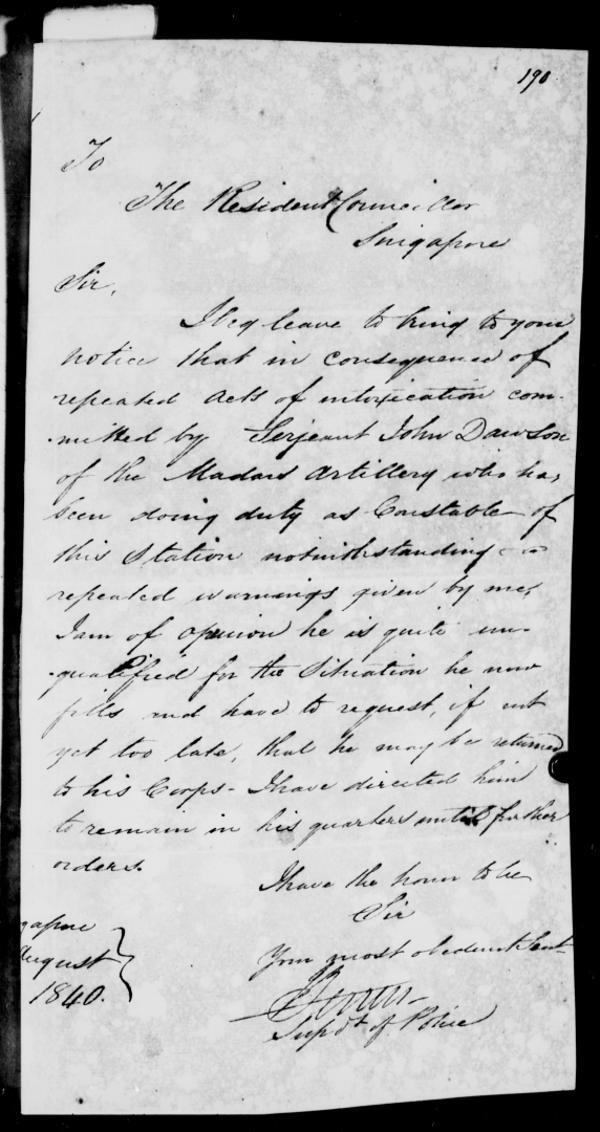 190
To
The Resident Councillor
Singapore
Sir,
I beg leave to bring to your
notice that in consequence of
repeated acts of intoxication com-
-mitted by Serjeant John Dawson
of the Madras Artillery who has
been doing duty as Constable of
this Station notwithstanding
repeated warnings given by me,
I am of opinion he is quite un-
-qualified for the Situation he now
fills and have to request, if not
yet too late, that he may be returned
to his Corps - I have directed him
to remain in his quarters until further
orders.
I have the honor to be
Sir
Your most obedient Servt
Supdt of Police
gapore
August
1840.